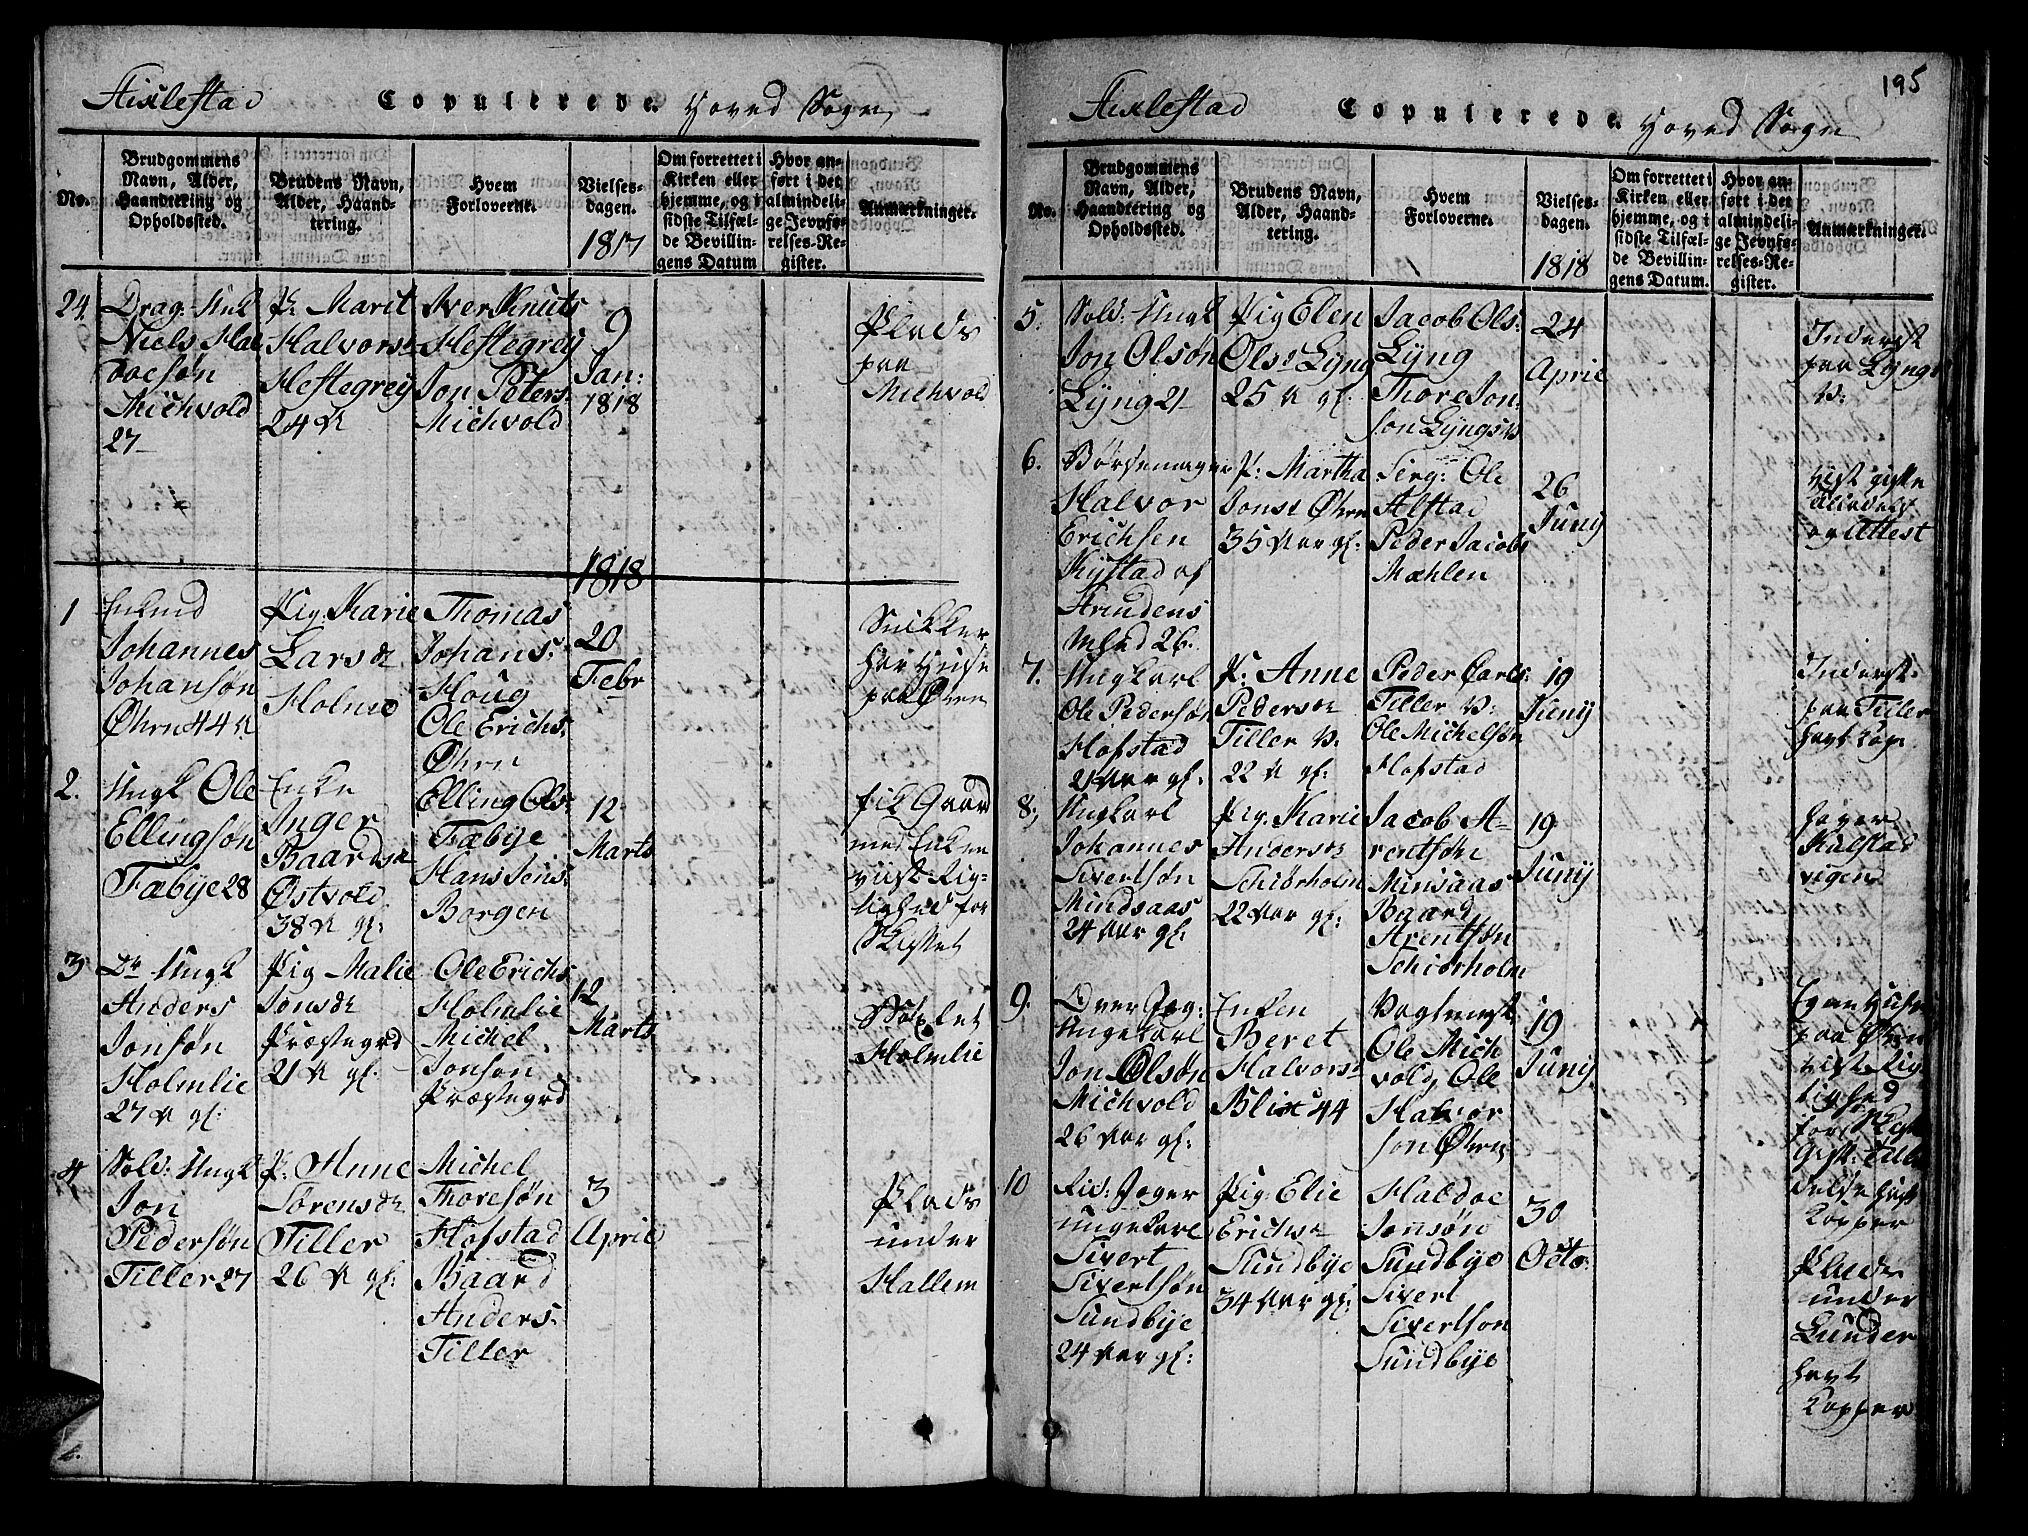 195
Stiklestad Copulerede. Hoved Sogn
No.
Brudgommens Navn, Alder, Haandtering og Opholdssted.
Brudens Navn, Alder, Haandtering.
Hvem Forloverne.
Vielses-dagen.
1817
Om forrettet i Kirken eller hjemme, og i sidste Tilfælde Bevillingens Datum
Hvor anført i det almindelige Jevnførelses-Register.
Anmærkninger.
24.
Drag: Ungk
Niels Hal
doesøn
Michvold
27
P: Marit
Halvorsdr
Heftegrey
24 A
Iver Knuts
Heftegrey
Jon Peters
Michvold
9
Jan:
1818
Plads
paa
Michvold
1818
1
Enkmd
Johannes
Johansøn
Øhrn 44 A
Pig. Karie
Larsdr
Holmo
Thomas
Johans:
Houg
Ole Erichs:
Øhrn
20
Febr
Snikker
har Huse
paa Øhrn
2.
Ungk Ole
Ellingsøn
Fæbye 28
Enke
Inger
Baardsdr
Østvold
38 A gl:
Elling Ols:
Fæbye
Hans Jens:
Borgen
12
Marts
fik Gaard
med Enken
viist Rig-
tighed for
Skiftet
3
Dr Ungk
Anders
Jonsøn
Holmlie
27 A gl:
Pig Malie
Jonsdr
Præstegrd
21 A gl.
Ole Erichs
Holmlie
Michel
Jonson
Præstegrd
12
Marts
Holmlie
4
Sold: Ungk
Jon
Pedersøn
Tiller 27
P: Anne
Sørensdr
Tiller
26 A gl:
Michel
Thoresøn
Hofstad
Baard
Anders:
Tiller
3
April
Plads
under
Hallem
Stiklestad Copulerede. Hoved Sogn
No.
Brudgommens Navn, Alder, Haandtering og Opholdssted.
Brudens Navn, Alder, Haandtering.
Hvem Forloverne.
Vielses-dagen.
1818
Om forrettet i Kirken eller hjemme, og i sidste Tilfælde Bevillingens Datum.
Hvor anført i det almindelige Jevnførelses-Register.
Anmærkninger.
5.
Sold: Ungk
Jon Olsøn
Lÿng 21
Pig Elen
Olsdr Lÿng
25 A gl.
Jacob Ols:
Lÿng
Thore Jon:
son Lÿngs
24
April
Inderst
paa Lÿngs
6.
Børsemager
Halvor
Erichsen
Kystad af
Strindens
26.
P: Martha
Jonsd Øhrn
35 Aar gl:
Serg: Ole
Alstad
Peder Jacobs
Mæhlen
26
Junÿ
og Attest
7.
Ungkarl
Ole Pedersøn
Hofstad
21 Aar gl:
P: Anne
Pedersdr
Tiller
22 A gl:
Peder Carls:
Tiller
Ole Michelsøn
Hofstad
19
Junÿ
Inderst
paa Tiller
havt Kop
8,
Ungkarl
Johannes
Sivertsøn
Mindsaas
24 Aar gl:
Pig Karie
Andersdr
Schiørholm
22 Aar gl:
Jacob A-
rentsøn
Minsaas
Baard
Arentsøn
Schiørholm
19
Junÿ
9.
Ungekarl
Jon Olsøn
Michvold
26 Aar gl:
Enken
Beret
Halvorsdr
Blixt 44
Vagtmest:
Ole Mich
vold, Ole
Halvor
son Øhrn
19
Junÿ
Egen Huse
paa Øhrn
vist Rig
tighed
for
10
Rid: Jæger
ungekarl
Sivert
Sivertsøn
Sundbÿe
24 Aar gl:
Pig: Elie
Erichsdr
Sundbÿe
34 Aar gl:
Haldoe
Jonsøn
Sundbÿe
Sivert
Sivertson
Sundbÿe
30
Octo:
Kopper
Plads
under
Lunder
havt
Kopper